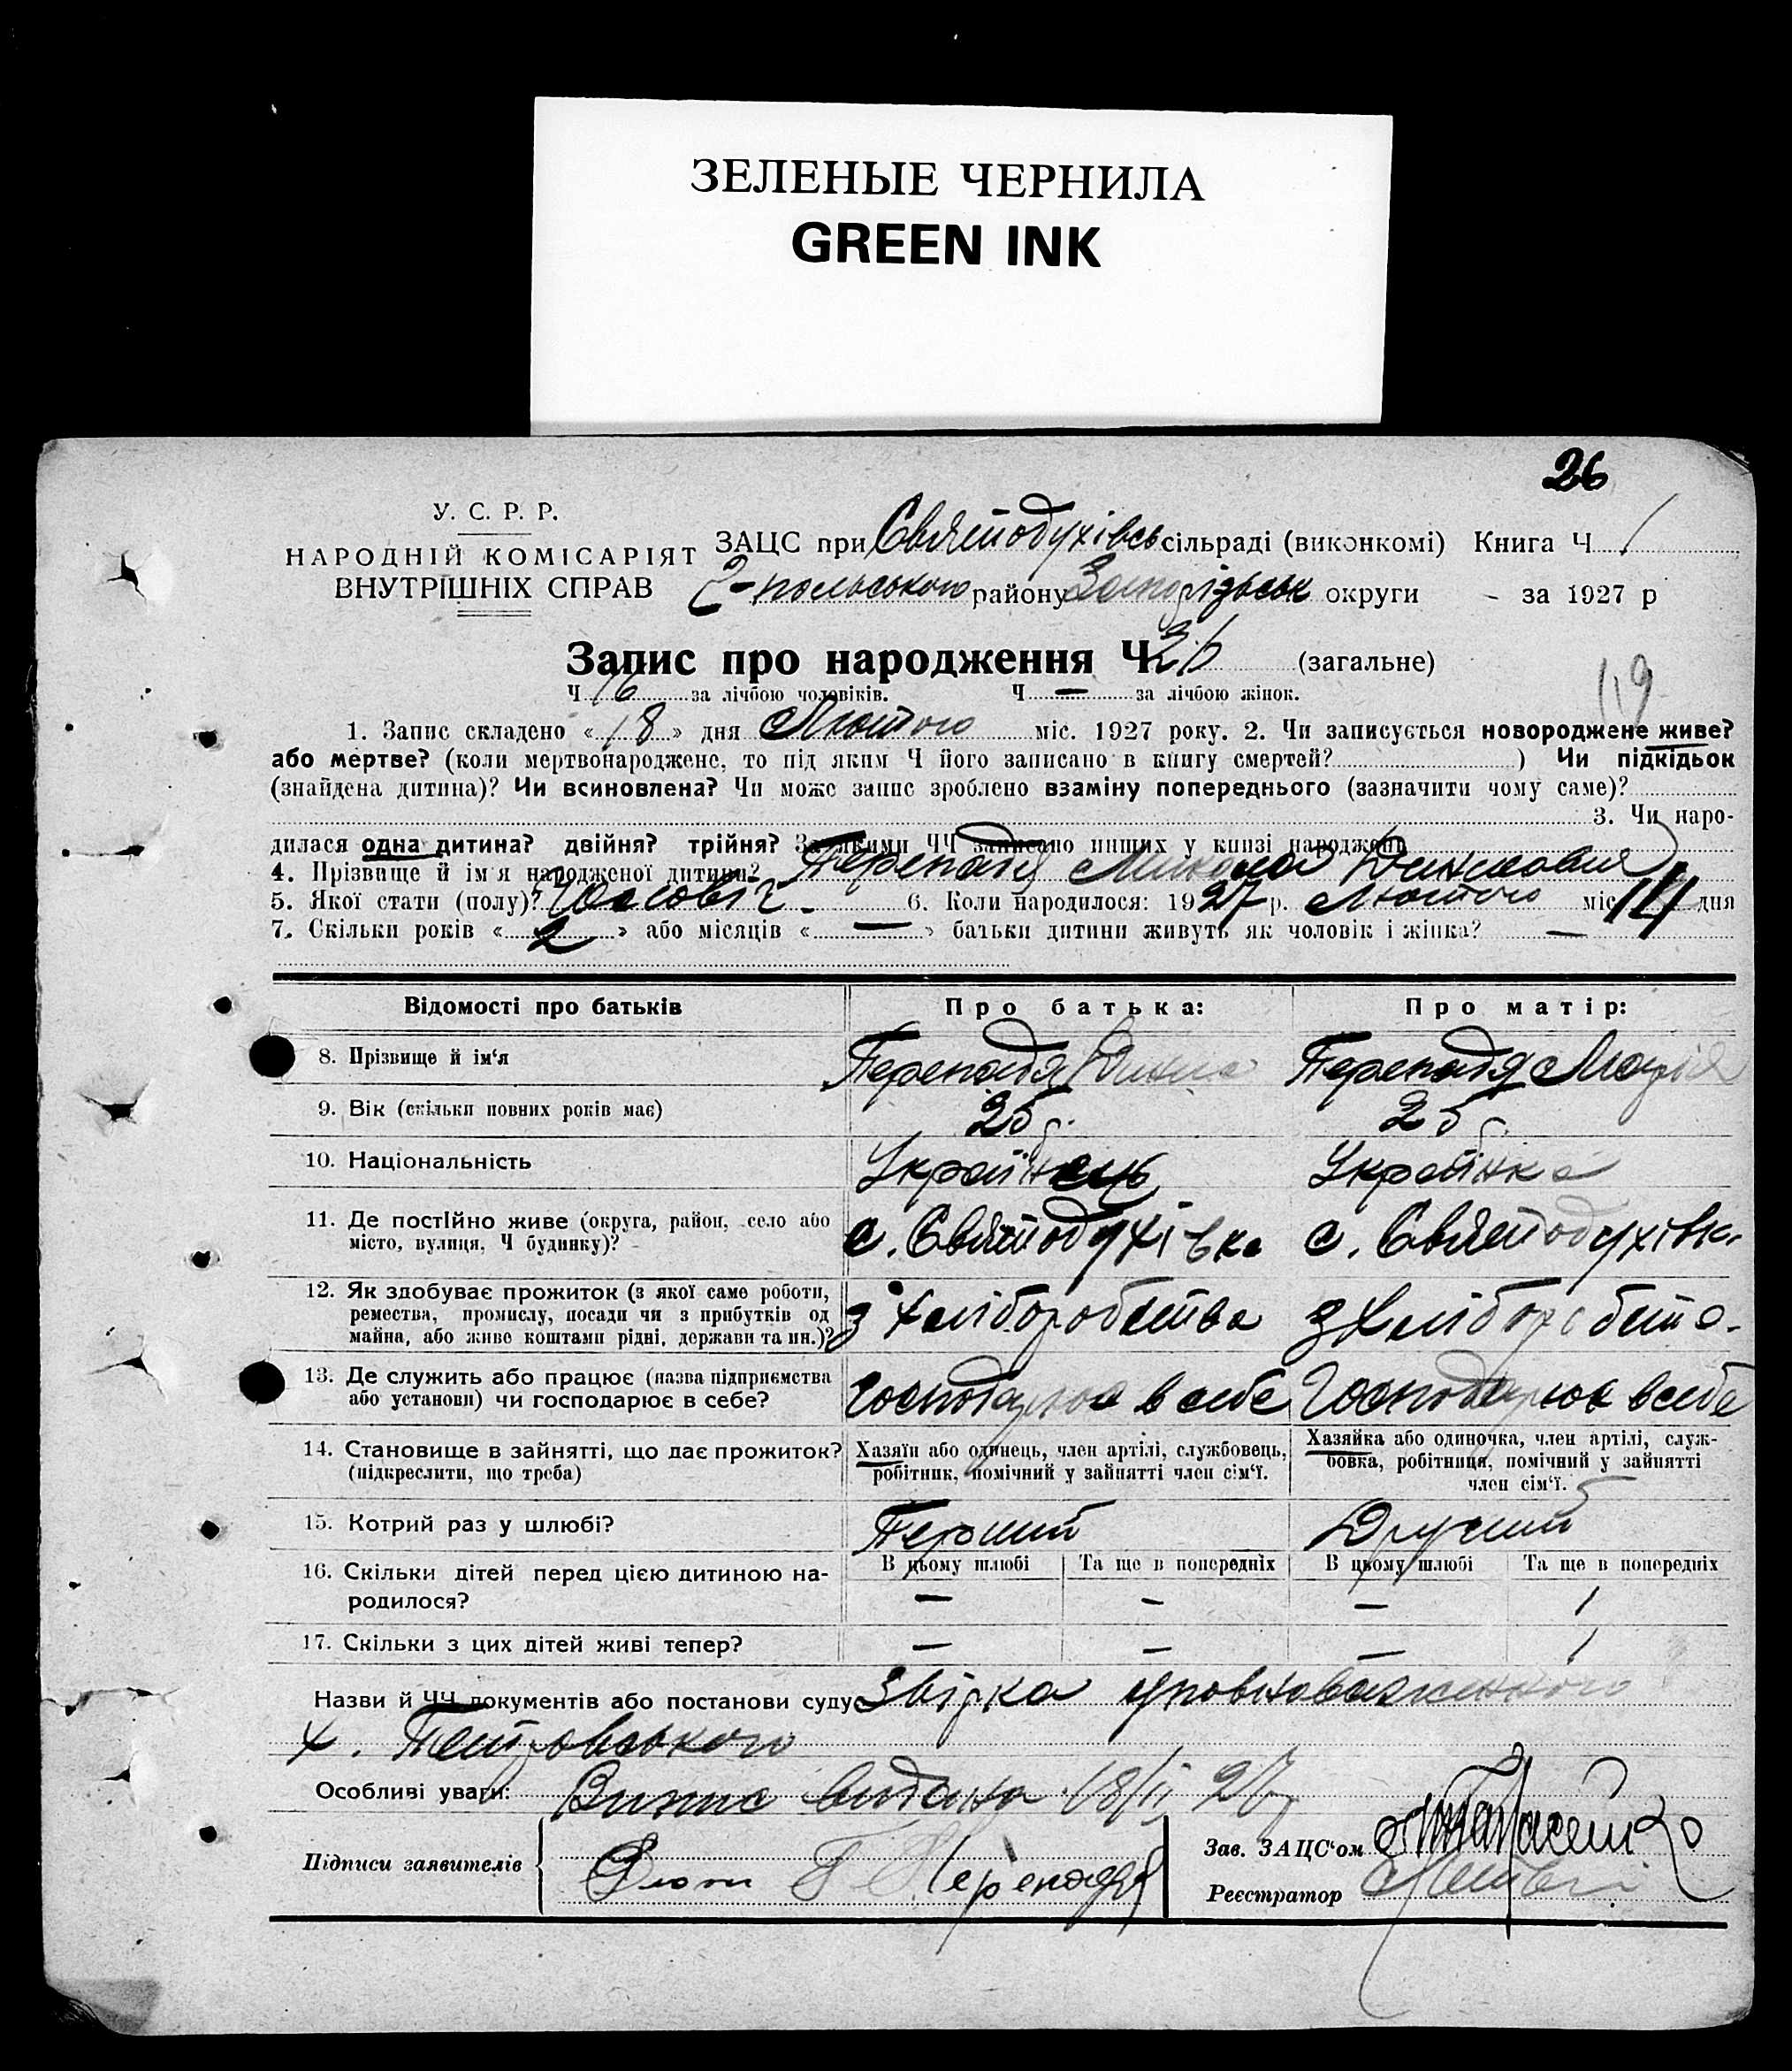 ЗЕЛЕНЫЕ ЧЕРНИЛА
GREEN INK
26
У. С. Р. Р.
НАРОДНІЙ КОМІСАРІЯТ
ВНУТРІШНІХ СПРАВ
ЗАЦС при Святодухівсь сільраді (виконкомі) Книга Ч 1
району Запорізьськ округи - за 1927 р
Запис про народження Ч 26 (загальне)
119
Ч 16 за лічбою чоловіків. Ч — за лічбою жінок.
1. Запис складено «18» дня Лютого міс. 1927 року. 2. Чи записується новороджене живе?
або мертве? (коли мертвонароджене, то під яким Ч його записано в книгу смертей? ) Чи підкідьок
(знайдена дитина)? Чи всиновлена? Чи може запис зроблено взаміну попереднього (зазначити чому саме)?
3. Чи наро-
дилася одна дитина? двійня? трійня? За якими ЧЧ записано инших у книзі народжень
4. Прізвище й ім'я народженої дитини? Перепадя Микола
5. Якої стати (полу)? Чоловіч. - 6. Коли народилося: 1927 р. Лютого міс 14 дня
7. Скільки років «2» або місяців «—» батьки дитини живуть як чоловік і жінка? —
Відомості про батьків Про батька: Про матір:
8. Прізвище й ім'я Перепадя Перепадя Марія
9. Вік (скільки повних років має) 25 р. 25 р.
10. Національність Українець Українка
11. Де постійно живе (округа, район, село або
місто, вулиця, Ч будинку)? с. Святодухівка с. Святодухівк.
12. Як здобуває прожиток (з якої саме роботи,
ремества, промислу, посади чи з прибутків од
майна, або живе коштами рідні, держави та ин.)? з хліборобства з хліборобств.
13. Де служить або працює (назва підприємства
або установи) чи господарює в себе? Господарює в себе Господарює в себе
14. Становище в зайнятті, що дає прожиток?
(підкреслити, що треба)
Хазяїн або одинець, член артілі, службовець,
робітник, помічний у зайнятті член сім'ї.
Хазяйка або одиночка, член артілі, служ-
бовка, робітниця, помічний у зайнятті
член сім'ї.
15. Котрий раз у шлюбі? Перший Другий
16. Скільки дітей перед цією дитиною на-
родилося?
В цьому шлюбі Та ще в попередніх В цьому шлюбі Та ще в попередніх
— - — 1
17. Скільки з цих дітей живі тепер? — — — 1
Назви й ЧЧ документів або постанови суду: Звірка уповноваженного
х. Петровського
Особливі уваги: Випис видана 18/II 27
Підписи заявителів Перепадя
Зав. ЗАЦС'ом
Реєстратор